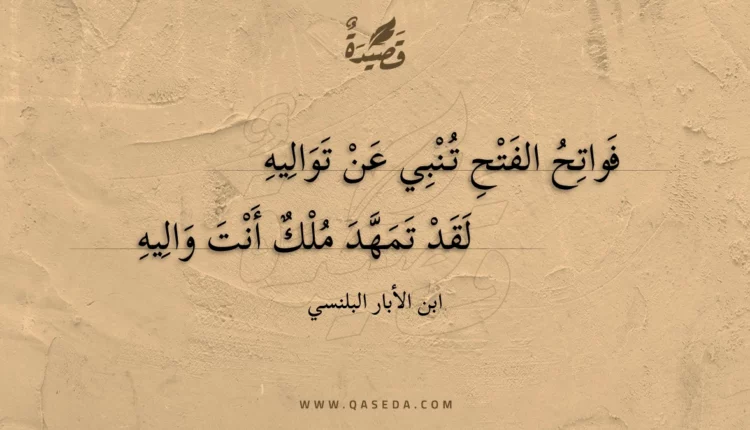 قَصِيدَةٌ
فَواتِحُ الفَتْحِ تُنْبِي عَنْ تَوَالِيهِ
لَقَدْ تَمَهَّدَ مُلْكٌ أَنْتَ وَالِيهِ
ابن الأبار البلنسي
WWW.QASEDA.COM